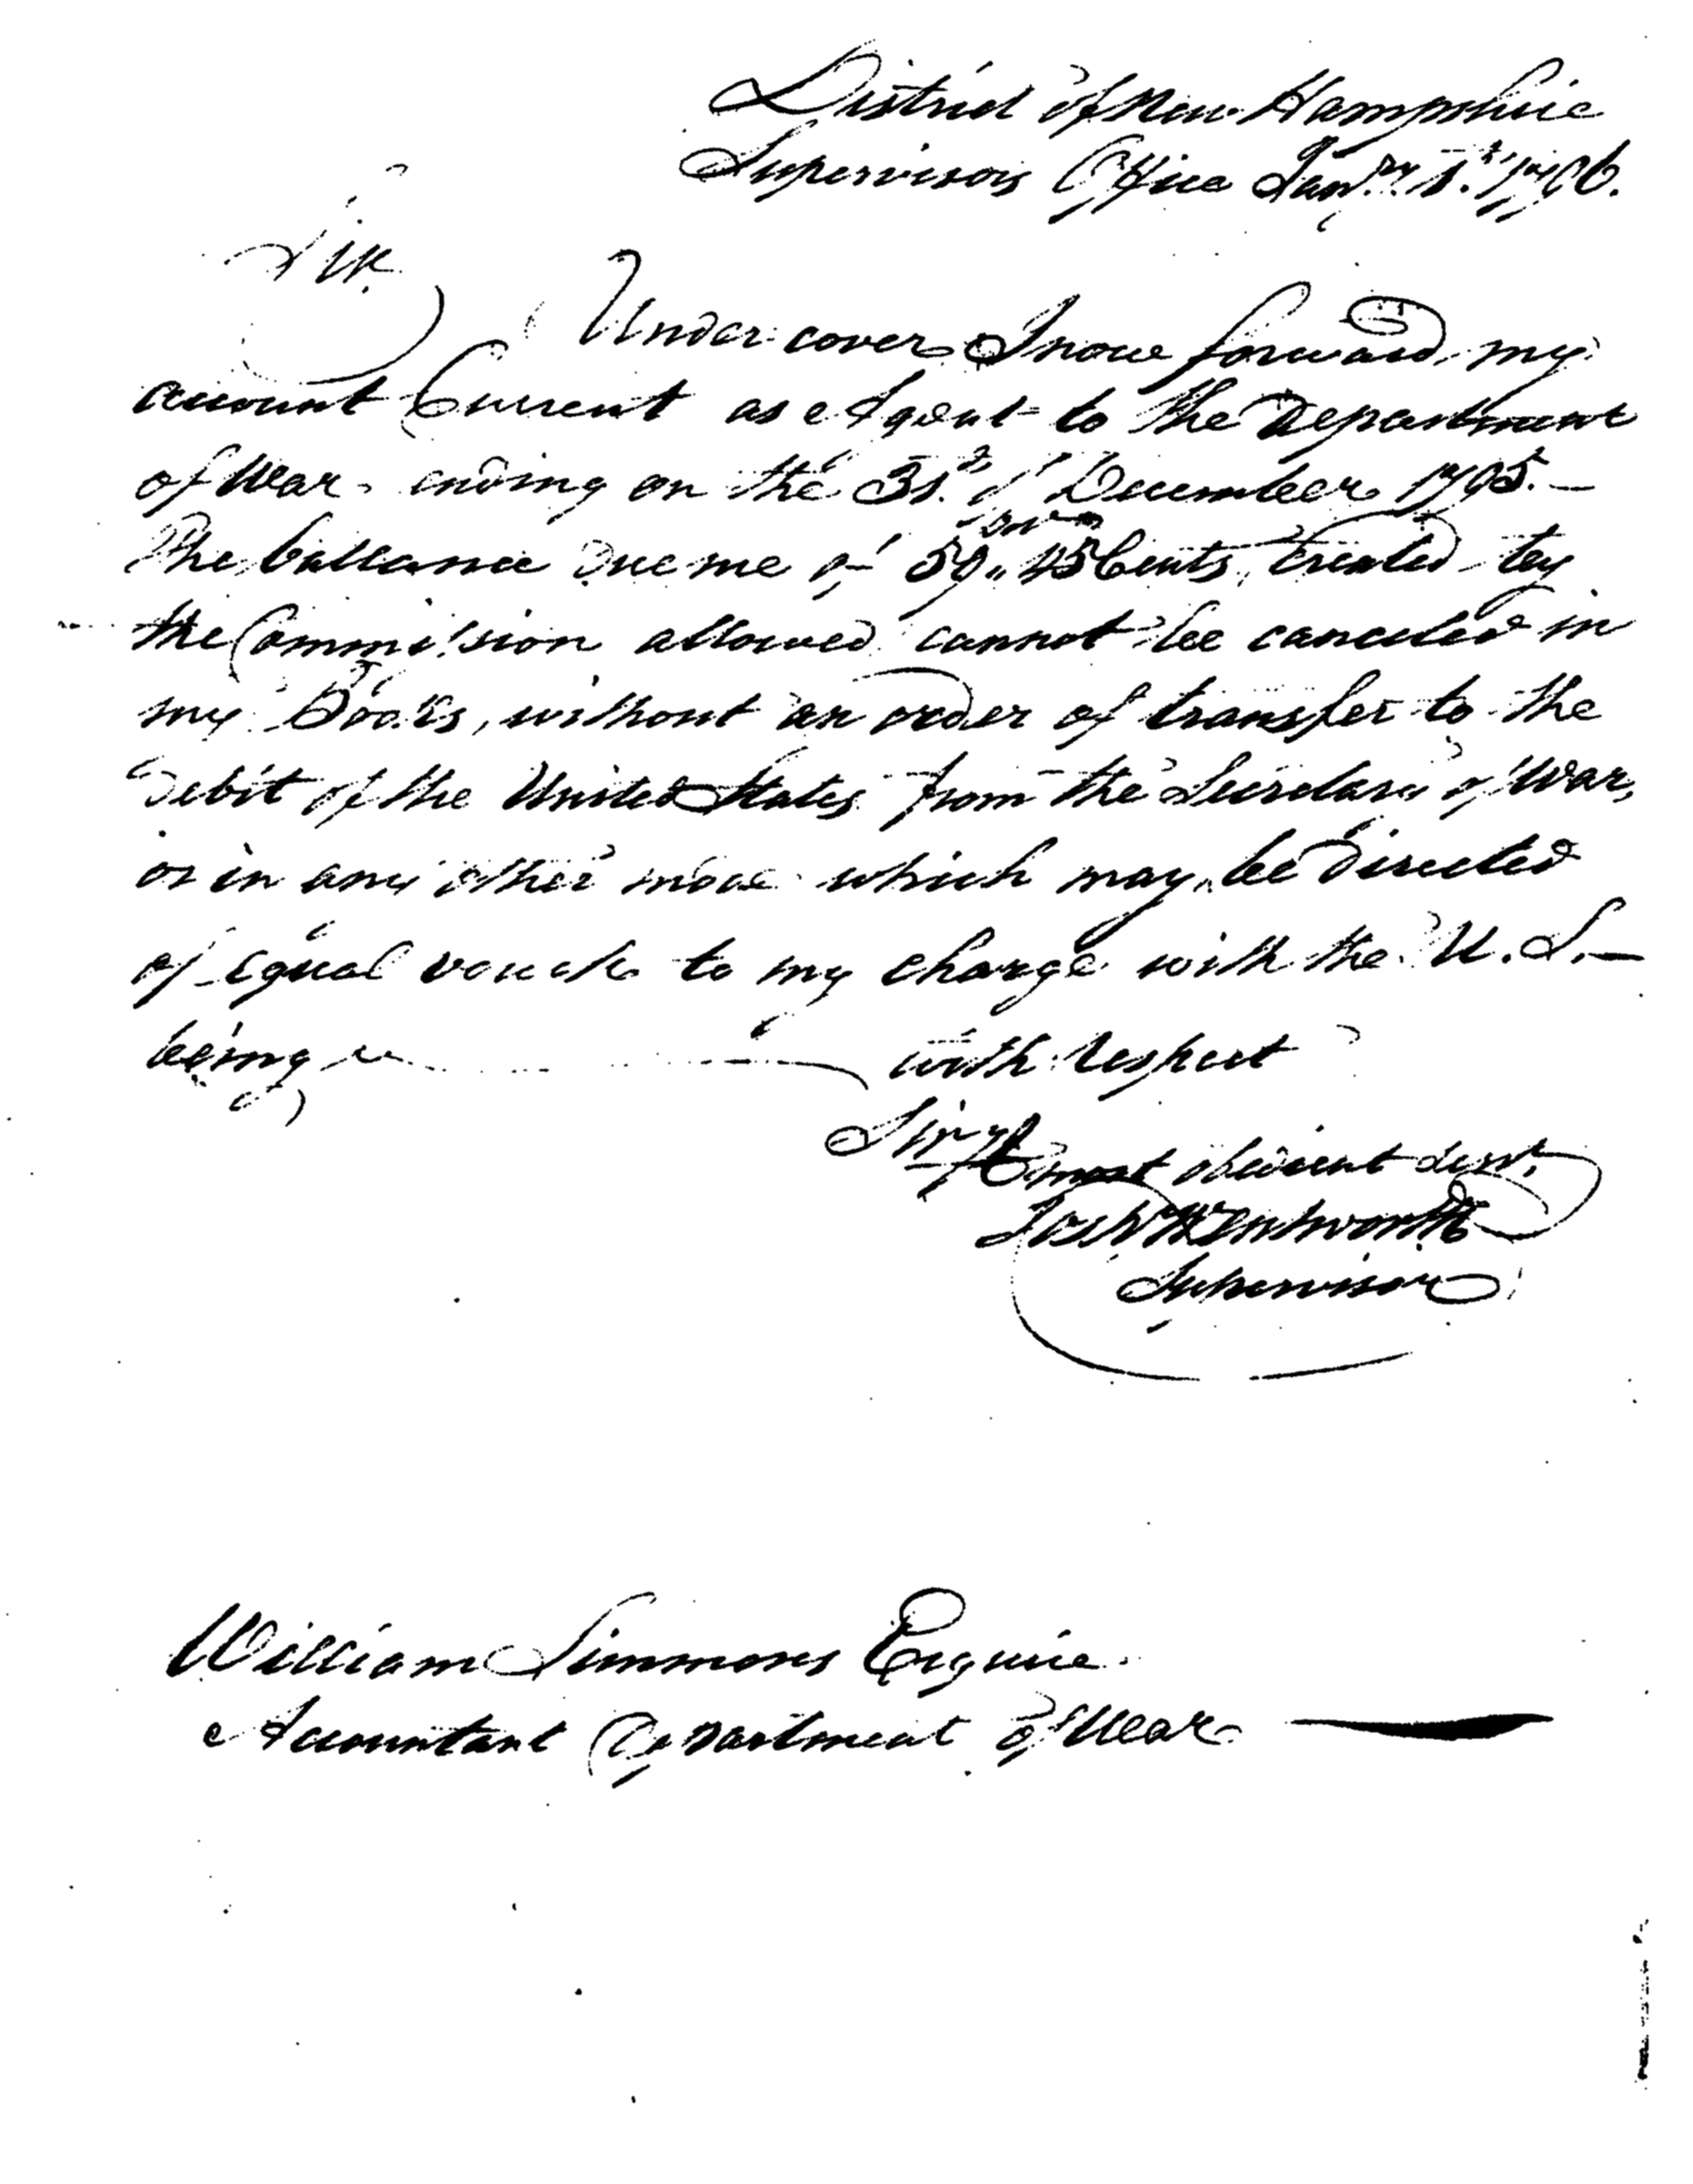 District of New Hampshire
Supervisors Office Jany. 1st. 1796.
Sir.
Under cover I now forward my
account Current as Agent to the Department
of War ending on the 31st. of December 1795.—
The ballance due me of 59,, 45 Cents, created by
the Commission allowed cannot be canceled in
my Books, without an order of transfer to the
debit of the United States from the Secretary of War,
or in any other mode which may be directed
of equal to my charge with the U. S.—
being with respect
Sir Yr most obedient Servt.
Josh Wentworth
Supervisor
William Simmons Esquire.
Accountant Department of War